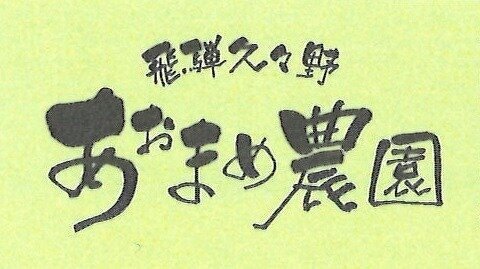 飛騨久々野
あおまめ農園